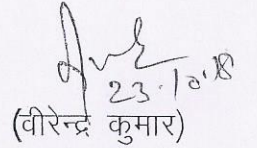 23.10.18
(वीरेन्द्र कुमार)